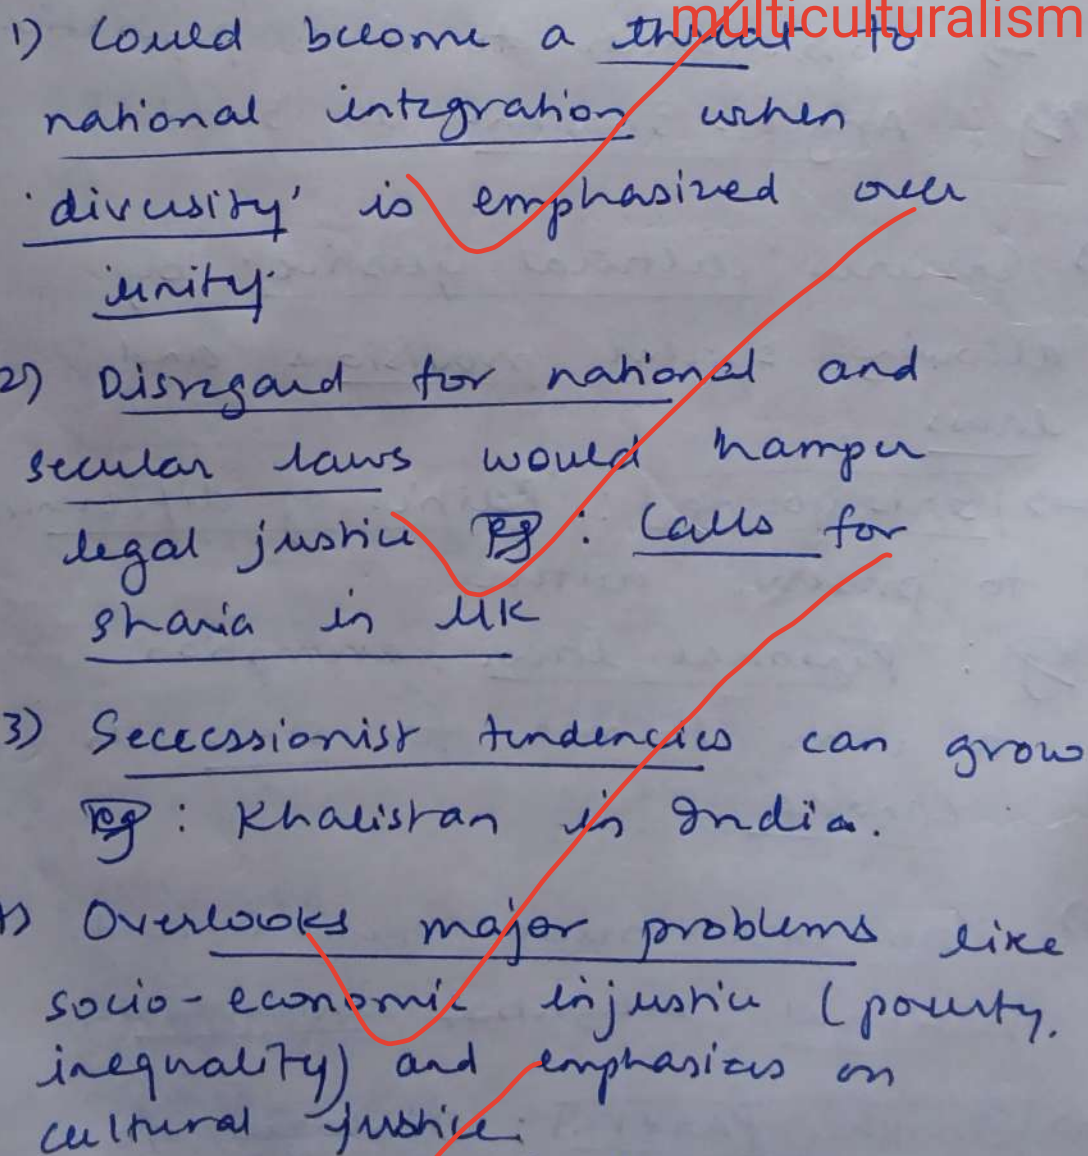 multiculturalism
1) Could become a threat to
national integration when
'diversity' is emphasized over
unity.
2) Disregard for national and
secular laws would hamper
legal justice Eg : Calls for
sharia in UK
3) Sececssionist tendencies can grow
Eg : Khalistan in India.
4) Overlooks major problems like
socio-economic injustice (poverty,
inequality) and emphasizes on
cultural justice.